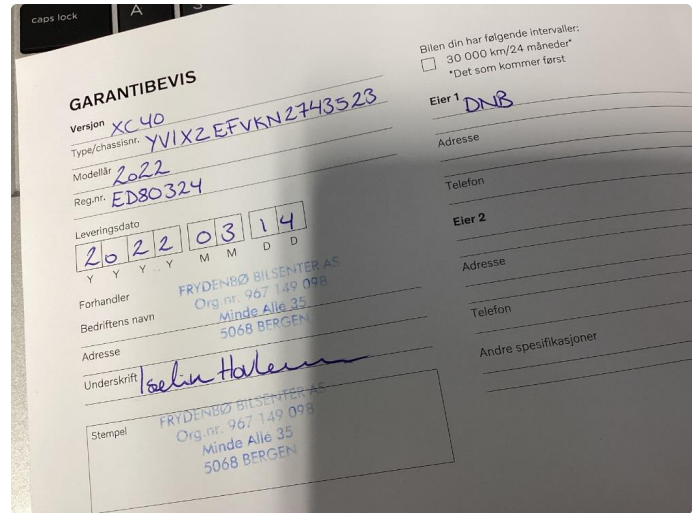 caps lock
A
S
GARANTIBEVIS
Versjon XC40
Type/chassisnr. YV1XZEFVKN2743523
Modellår 2022
Reg.nr. ED80324
Leveringsdato
2022 03 14
Y Y Y Y M M D D
Forhandler
FRYDENBØ BILSENTER AS
Org.nr. 967 149 098
Bedriftens navn
Minde Allè 35
5068 BERGEN
Adresse
Underskrift Iselin
Stempel
FRYDENBØ BILSENTER AS
Org.nr. 967 149 098
Minde Allè 35
5068 BERGEN
Bilen din har følgende intervaller:
30 000 km/24 måneder*
*Det som kommer først
Eier 1 DNB
Adresse
Telefon
Eier 2
Adresse
Telefon
Andre spesifikasjoner